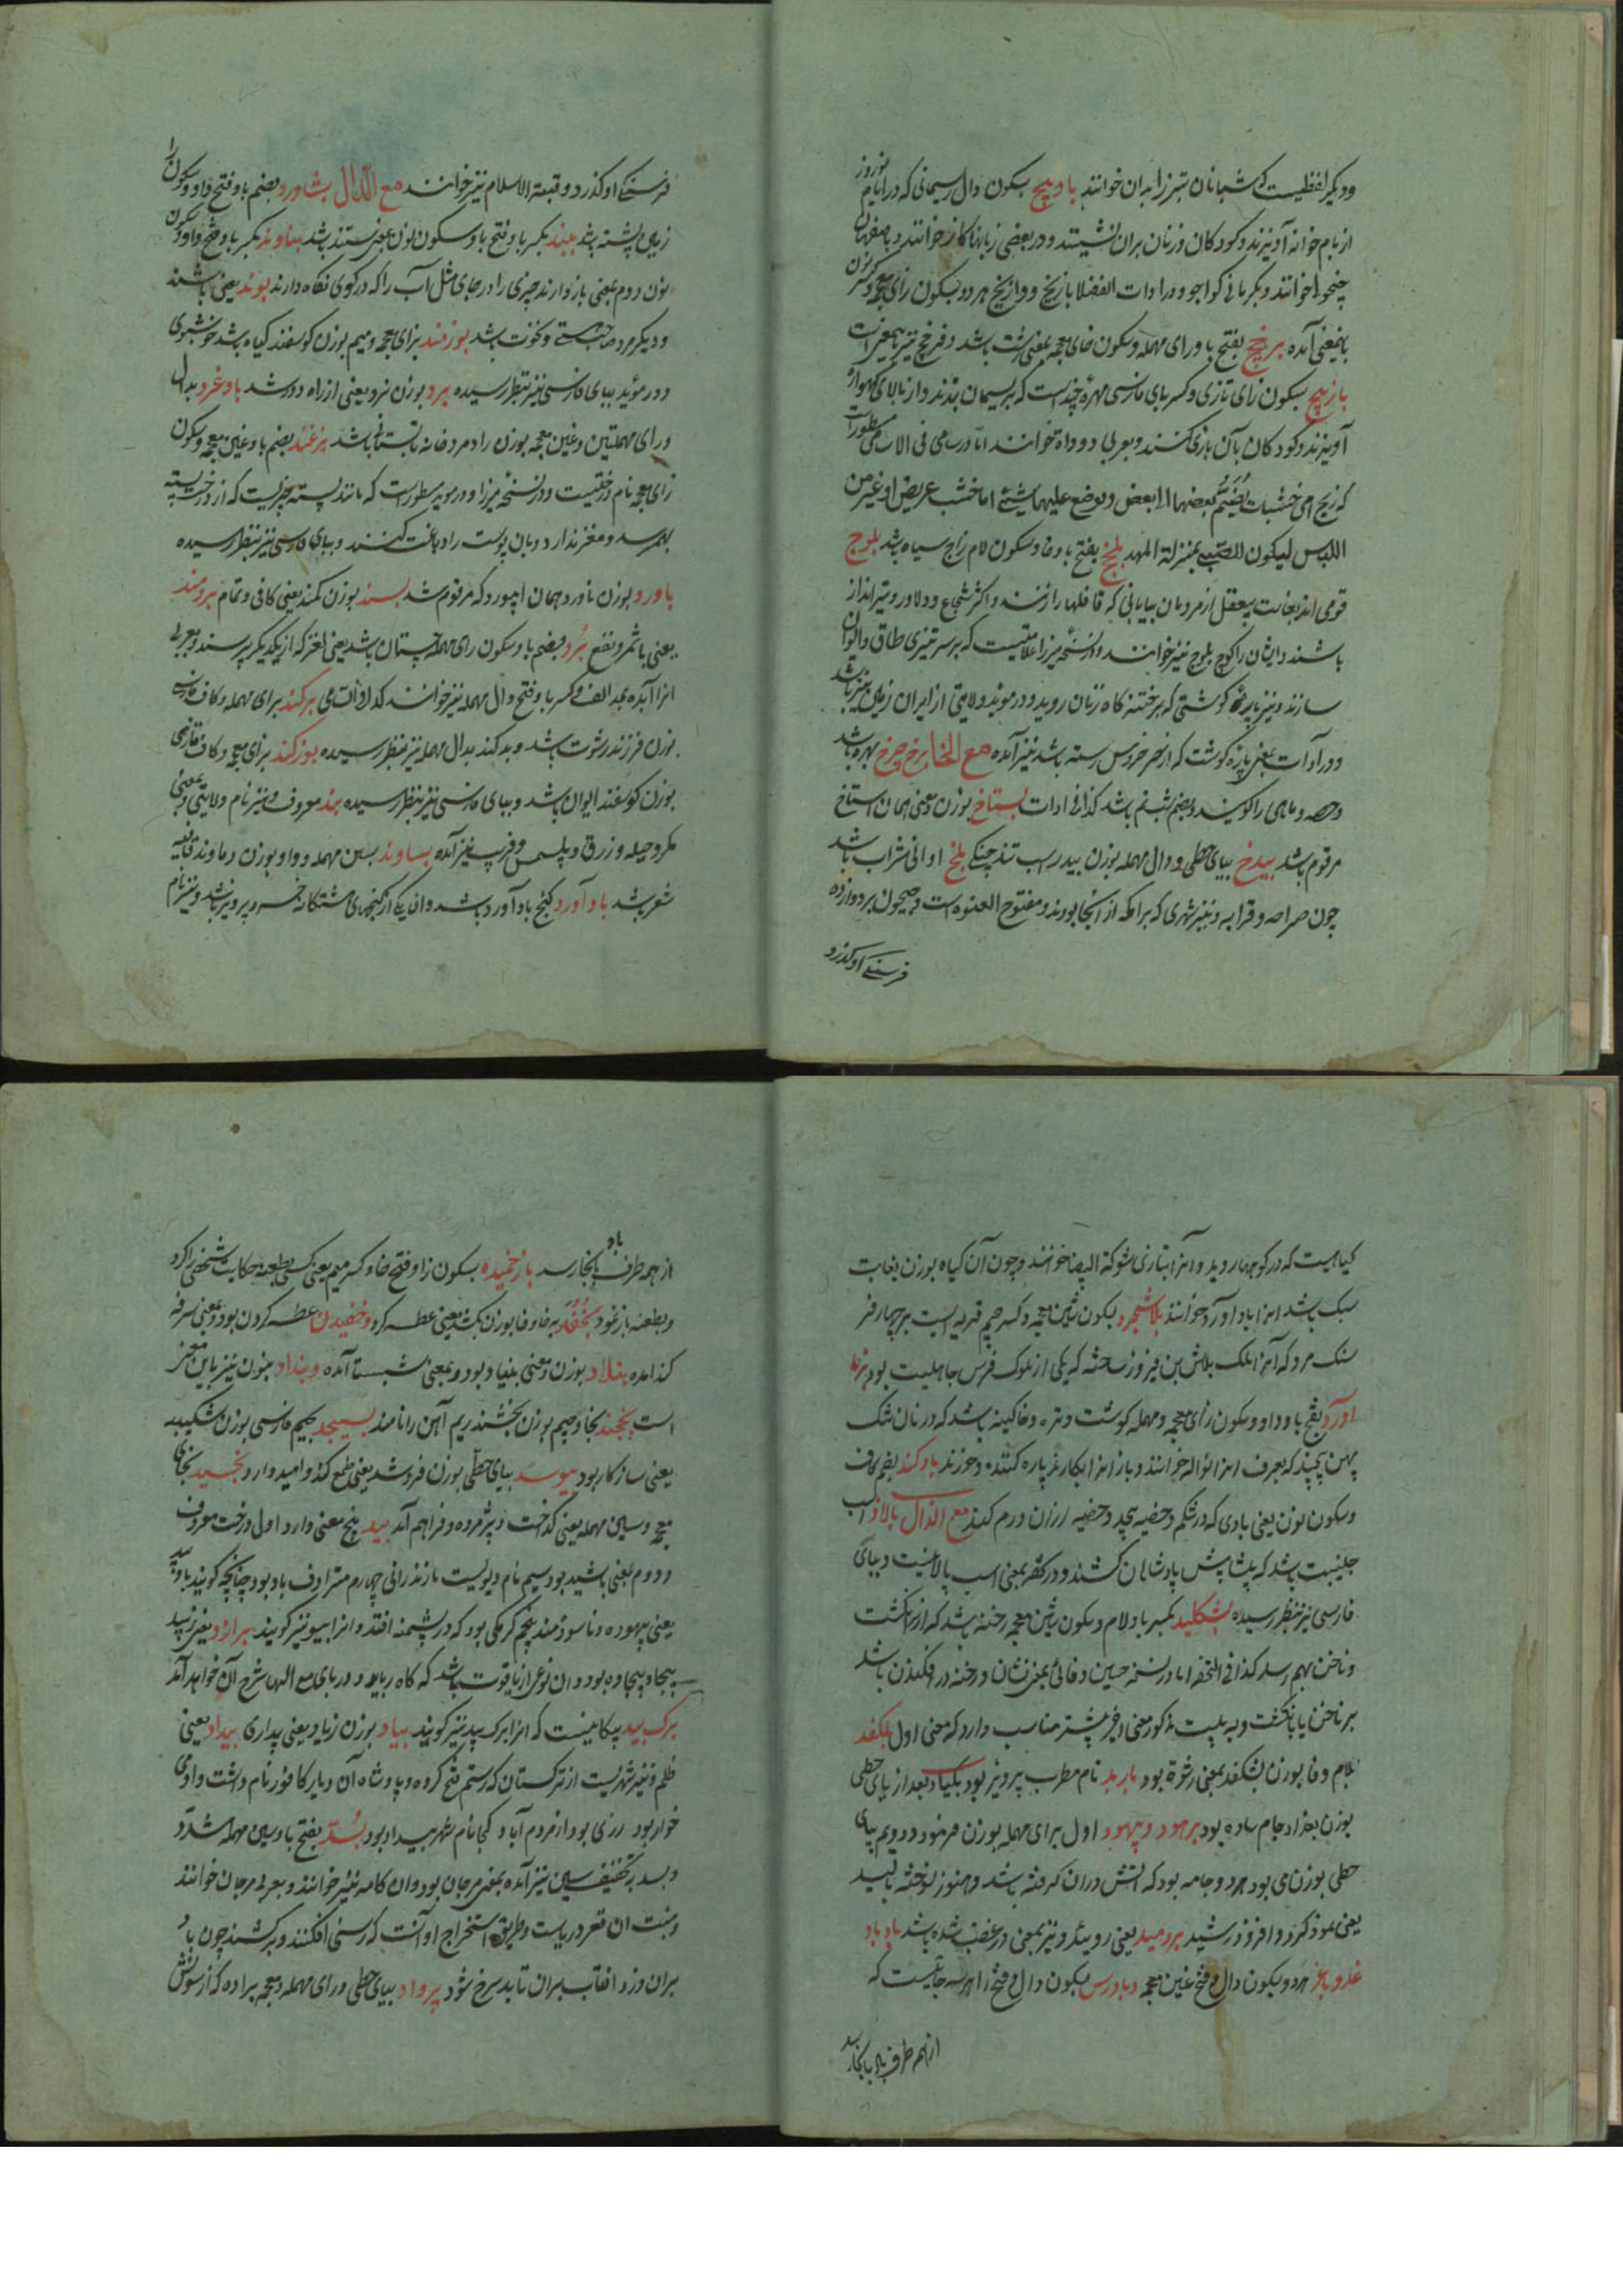 و دیکر لفظیست که شبانان بتبرزا بدان خوانند بادپیچ بسکون دال ریسمانی که در ایام نوروز
از بام خوانه آویزند و کودکان و زنان بران نشینند و در بعضی زبانها کاز خوانند و باصفهان
چنجولی خوانند و بکرمانی کواجو و در ادات الفضلا بازیخ و وازیخ هر دو بسکون رای معجمه و کسر نون
باینمعنی آمده برخچ بفتح با و رای مهمله و سکون خای معجمه بمعنی زشت باشد و فرخج نیز بهمین معنیست
بازپیچ بسکون زای تازی و کسر بای فارسی مهرهٔ چند است که بریسمان بندند و از بالای کهواره
آویزند و کودکان بآن بازی کنند و بعربی دوداة خوانند اما در سامی فی الاسامی مسطورات
که زیج ای خشبات یضم بعضها الی بعض و یوضع علیها شیئ اما خشب عریض او غیره من
اللباس لیکون للصبی بمنزلة المهد بلخج بفتح با و خا و سکون لام زاج سیاه باشد بلوج
قومی اند بغایت بیعقل از مردمان بیابانی که قافلها را زنند و اکثر شجاع و دلاور و تیرانداز
باشند و ایشان را کوچ بلوچ نیز خوانند و در نسخهٔ میرزا علامتیست که بر سر تیزی طاق و ایوان
سازند و نیز پارهٔ کوشتی که بر ختنه کاه زنان روید و در موید ولایتی از ایران زمین نیز باشد
و در ادات بمعنی پاره کوشت که از سر خروس رسته باشد نیز آمده مع الخا برخ چرخ بهره باشد
و حصه و ماهی را کویند و بضم شبنم باشد کذا فی ادات بستاخ بوزن و معنی همان استاخ
مرقوم باشد بیدخ بیای حطی و دال مهمله بوزن بیدر اسب تند جنکی بلخ اوانی شراب باشد
چون صراحه و قرابه و نیز شهری که برامکه از آنجا بودند و مفتوح العنوه است و جیحون بر دوازده
فرسنکی او کذرد
فرسنکی او کذرد و قبة الاسلام نیز خوانند مع الدال بشاورد بضم با و فتح واو و سکون را
زمین پشته باشد ببند بکسر با و فتح با و سکون نون یعنی بستند باشد بناوند بکسر با و فتح واو و سکون
نون دوم بمعنی بازدارند چیزی را در جای مثل آب را که در کوی نکاه دارند بوند یعنی باشند
و دیکر مرد صاحب هستی و نخوت باشد بوزمند بزای معجمه و میم بوزن کوسفند کیاه باشد خوشبوی
و در مؤید ببای فارسی نیز بنظر رسیده برد بوزن نرد یعنی از راه دور شد بادغرد بدال
و رای مهملتین و غین معجمه بوزن رادمرد خانه تابستانی باشد بزغند بضم با و غین معجمه و سکون
زای معجمه نام درختیست و در نسخه میرزا و در موید مسطورست که مانند پسته چیزیست که از درخت پسته
بهمرسد و مغز ندارد و بان پوست را دباغت کنند و ببای فارسی نیز بنظر رسیده
باورد بوزن ناورد همان ابیورد که مرقوم شد بسند بوزن کمند یعنی کافی و تمام برومند
یعنی با ثمر و نفع برد بضم با و سکون رای مهمله چیستان باشد یعنی لغز که از یکدیکر پرسند و بعربی
انرا آبده بمد الف و کسر با و فتح دال مهمله نیز خوانند کذا فی السامی برکند برای مهمله و کاف فارسی
بوزن فرزند رشوت باشد و بدکند بدال مهمله نیز بنظر رسیده بوزکند بزای معجمه و کاف فارسی
بوزن کوسفند ایوان باشد و ببای فارسی نیز بنظر رسیده بند معروف و نیز نام ولایتی و بمعنی
مکر و حیله و زرق و پلمس و فریب نیز آمده بساوند بسین مهمله و واو بوزن دماوند قافیه
شعر باشد بادآورد کنج بادآورد باشد و ان یکی از کنجهای هشتکانه خسرو پرویز باشد و نیز نام
کیاهیست که در کوهها روید و آنرا بتازی شوکة البیضا خوانند و چون آن کیاه بوزن بغایت
سبک باشد انرا بادآورد خوانند بلاشجرد بسکون شین معجمه و کسر جیم قریه ایست بر چهار فر
سنک مرو که آنرا ملک بلاش بن فیروز ساخته که یکی از ملوک فرس جاهلیت بود بزما
اورد بفتح با و واو و سکون زای معجمه و مهمله کوشت و تره و خاکینه باشد که در نان تنک
پهن پیچند که بعرف انرا نواله خوانند و باز انرا بکارد پاره کنند و خورند بادکند بضم کاف
و سکون نون یعنی بادی که در شکم و خصیه پیچد و خصیه ارزان ورم کند مع الذال بالاد اسب
جنیبت باشد که پیشاپیش پادشاهان کشند و در کفر بمعنی اسب پالانیست و ببای
فارسی نیز بنظر رسیده بشکلید بکسر با و لام و سکون شین معجمه رخنه باشد که از انکشت
و ناخن بهم رسد کذا فی التحفه اما در نسخه حسین وفائی بمعنی نشان و رخنه در افکندن باشد
بر ناخن یا بانکشت و به بیت مذکور معنی اخیر بیشتر مناسب دارد که معنی اول بلکفد
بلام و فا بوزن بشکفد بمعنی رشوة بود باربد نام مطرب پرویز بود بکیاد بعد از یای حطی
بوزن بغداد جام ساده بود برهود و بیهود اول برای مهمله بوزن فرمود و دویم بیای
حطی بوزن می بود هر دو جامه بود که آتش دران کرفته باشد و هنوز نسوخته باشد
یعنی نمود کرد و افروز رشید بردمید یعنی روئید و نیز بمعنی در غضب شده باشد باد باد
غد و باغر هر دو بسکون دال و فتح غین معجمه و بادرس بسکون دال و فتح را هر سه جائیست که
از همه طرف باد بانجا رسد
از همه طرف باد بانجا رسد بازخمیده بسکون زا و فتح خا و کسر میم یعنی کسی بطعنه حکایت شخصی را کرد
و بطعنه باز نمود بخفد بخا و فا بوزن بکند بمعنی عطسه کرد و خفیدن عطسه کردن بود و بمعنی سرفه
کذا مده بنلاد بوزن و معنی بنیاد بود و بمعنی نشبست آمده و بنداد بنون نیز باین معنی
است بخجند بخا و جیم بوزن بخشند ریم آهن را نامند بسیچد بجیم فارسی بوزن شکیبد
یعنی سازکار بود بیوسد بیای حطی بوزن فروشد یعنی طمع کند و امید وارد بخسید بخای
معجمه و سین مهمله یعنی کداخت و پژمرده و فراهم آمد بید پنج معنی دارد اول درخت معروف
و دوم بمعنی باشید بود سیم نام دیویست مازندرانی چهارم مترادف باد بود چنانچه کویند باد بید
یعنی بیهوده و ناسودمند پنجم کرمکی بود که در پشمینه افتد و انرا بیو نیز کویند برازد یعنی زیبد
بیجاد بیجاده بود و ان نوعی از یاقوت باشد که کاه رباید و در بای مع الها شرح آن خواهد آمد
برک بید پیکانیست که انرا برک بید نیز کویند بیاد بوزن زیاد یعنی بیداری بیداد یعنی
ظلم و نیز شهریست از ترکستان که رستم فتح کرده و پادشاه آن دیار کافور نام داشت و ادمی
خوار بود رزی بود از مردم آباد کجا نام شهر بیداد بود بسد بفتح با و سین مهمله مشدد
و بسد بتخفیف سین نیز آمده بمعنی مرجان بود و ان کامه نیز خوانند و بعربی مرجان خوانند
و بنت ان قعر دریاست و طریق استخراج او آنست که رسنی افکنند و برکشند چون باد
بران وزد افتاب بران تابد سرخ شود پرواد بیای حطی و رای مهمله و معجمه براده که از سونش